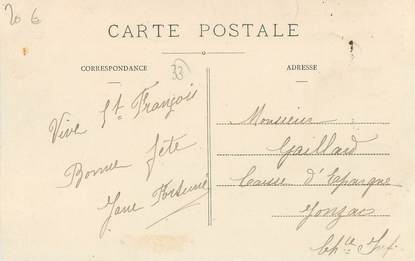 20 €
CARTE POSTALE
CORRESPONDANCE
ADRESSE
33
Vive St François
Bonne fête
Monsieur
Gaillard
Caisse d'Epargne
Jonzac
Chte Inf.